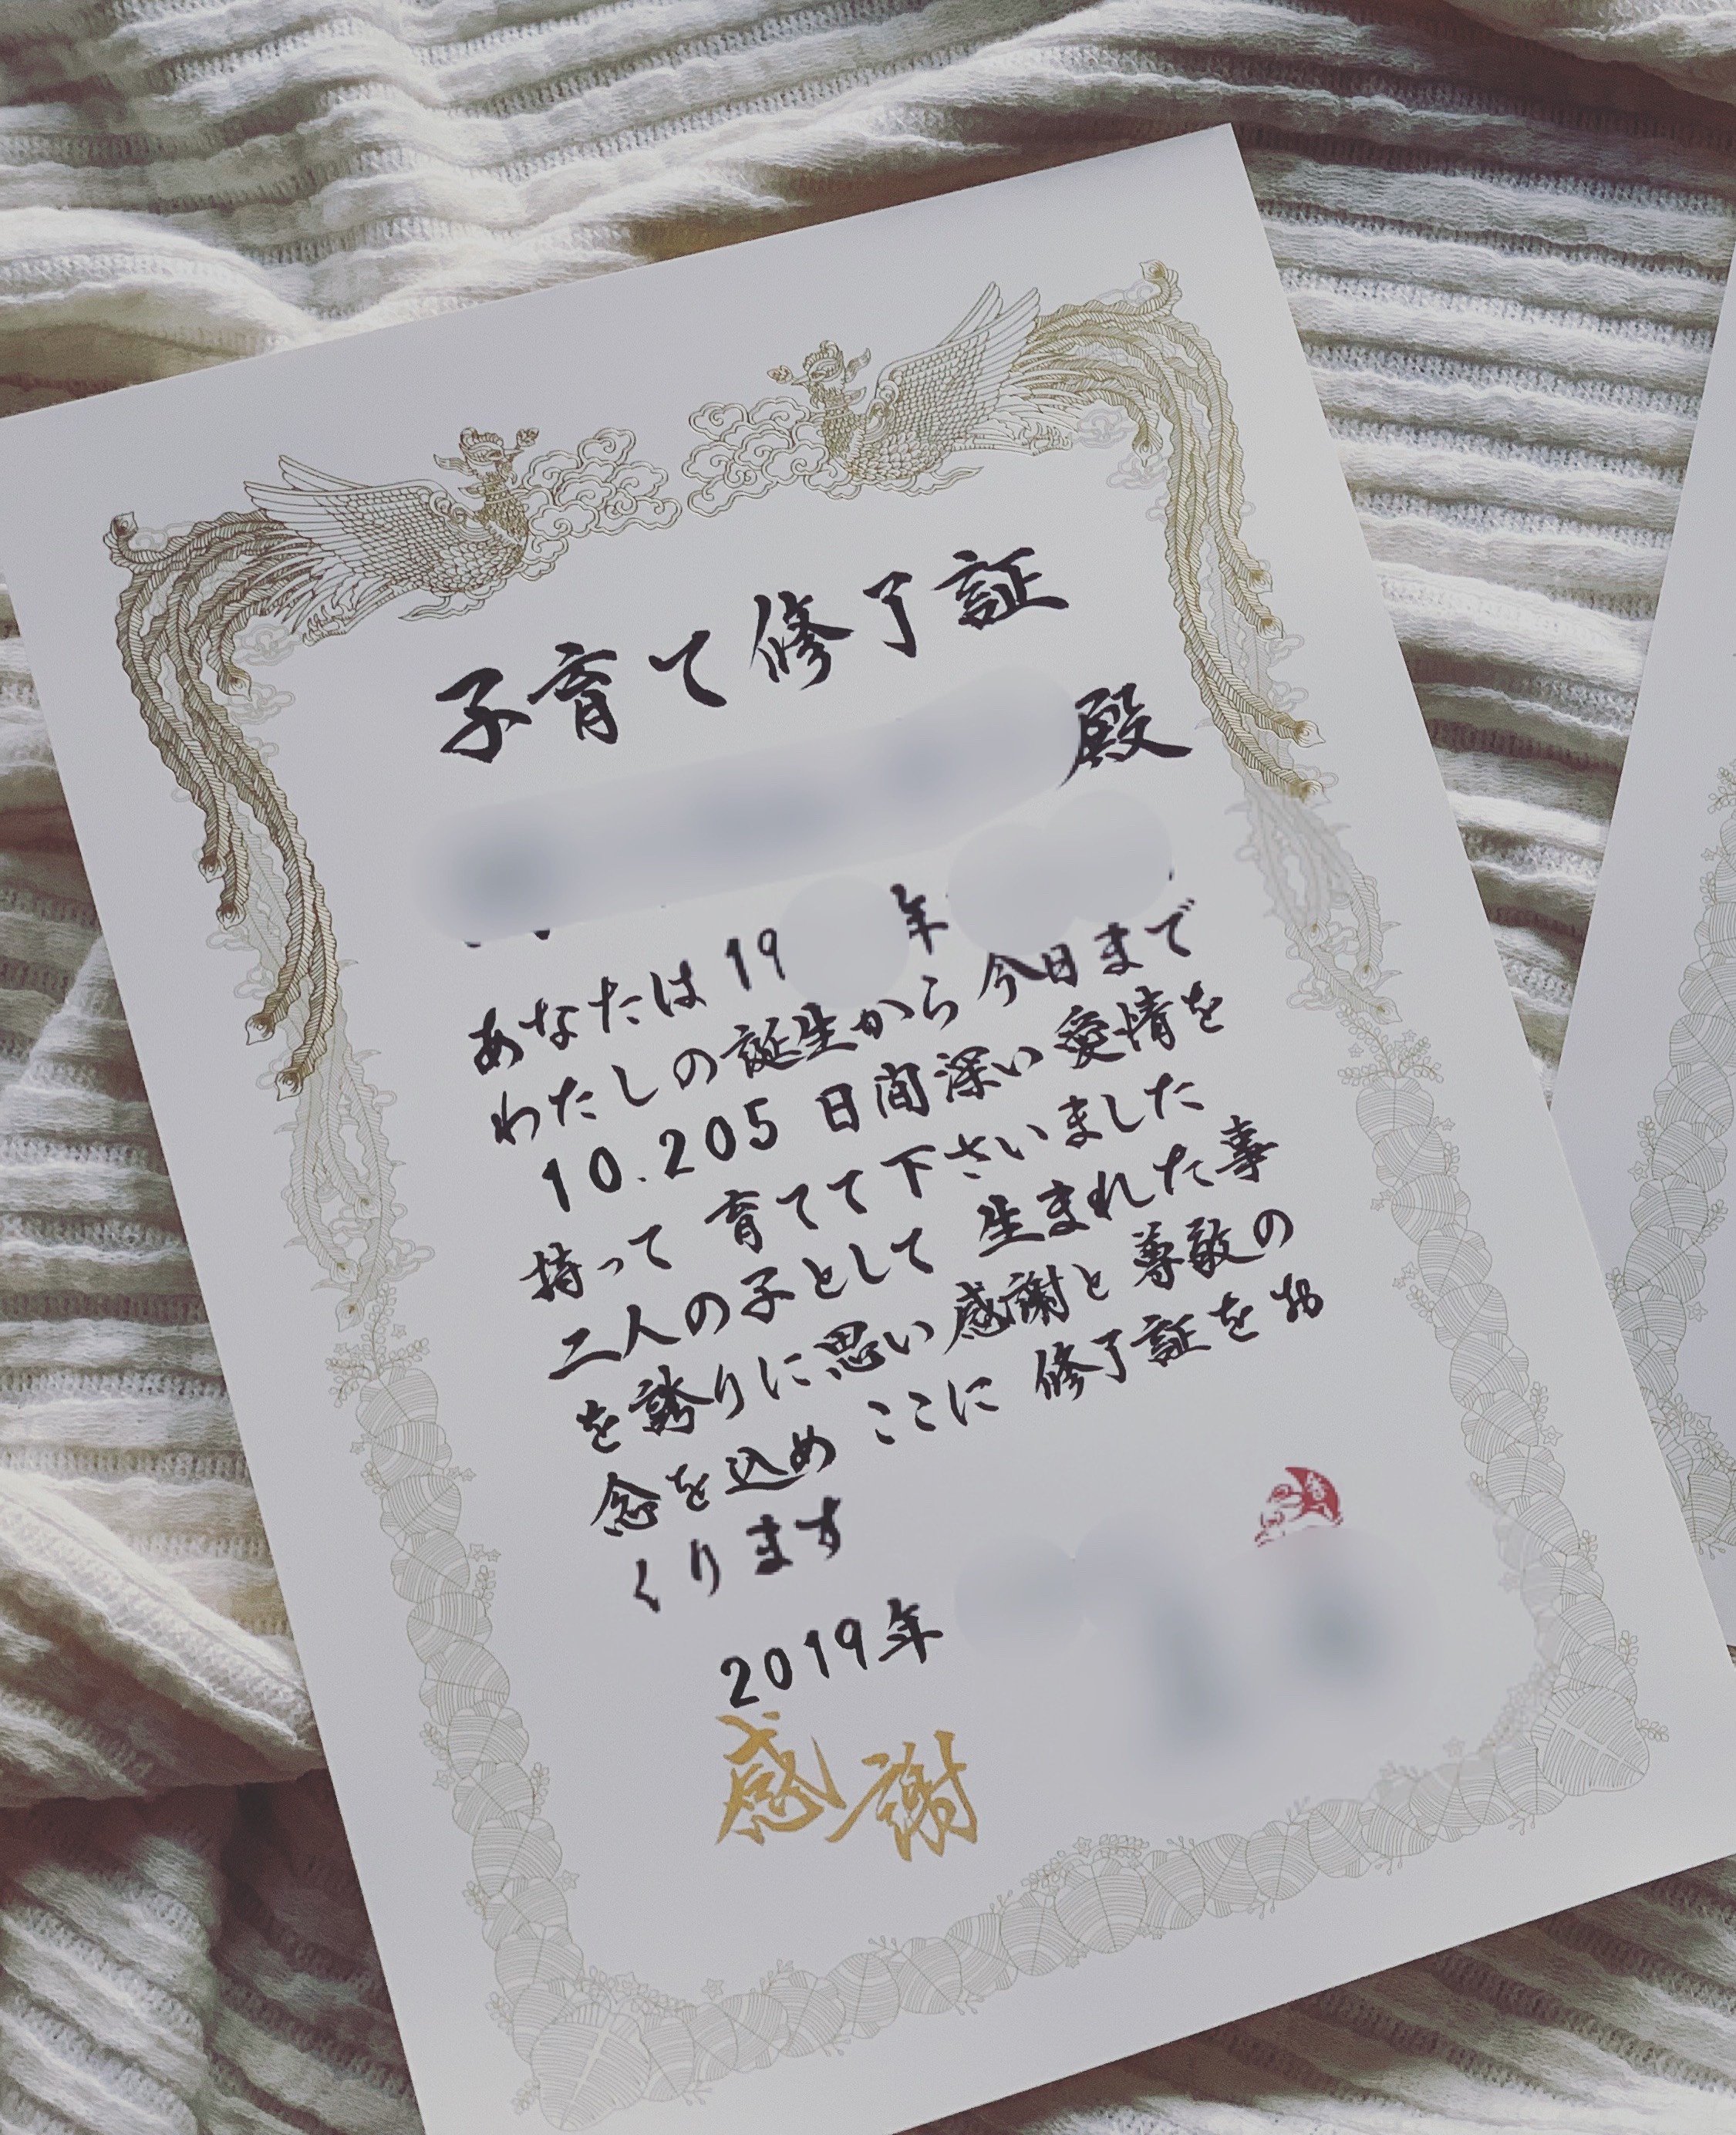 子育て修了証
殿
あなたは19 年
わたしの誕生から今日まで
10.205日間深い愛情を
持って育てて下さいました
二人の子として生まれた事
を誇りに思い感謝と尊敬の
念を込めここに修了証をお
くります
2019年
感謝